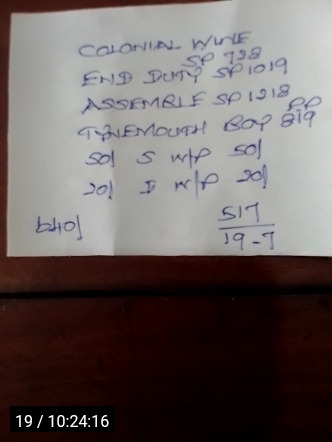 COLONIAL WINE
SP 728
END DUTY SP 1019
ASSEMBLE SP 1218
PP
TYNEMOUTH BOY 819
50/ S W/P 50/
20/ I W/P 20/
517
19-7
19 / 10:24:16